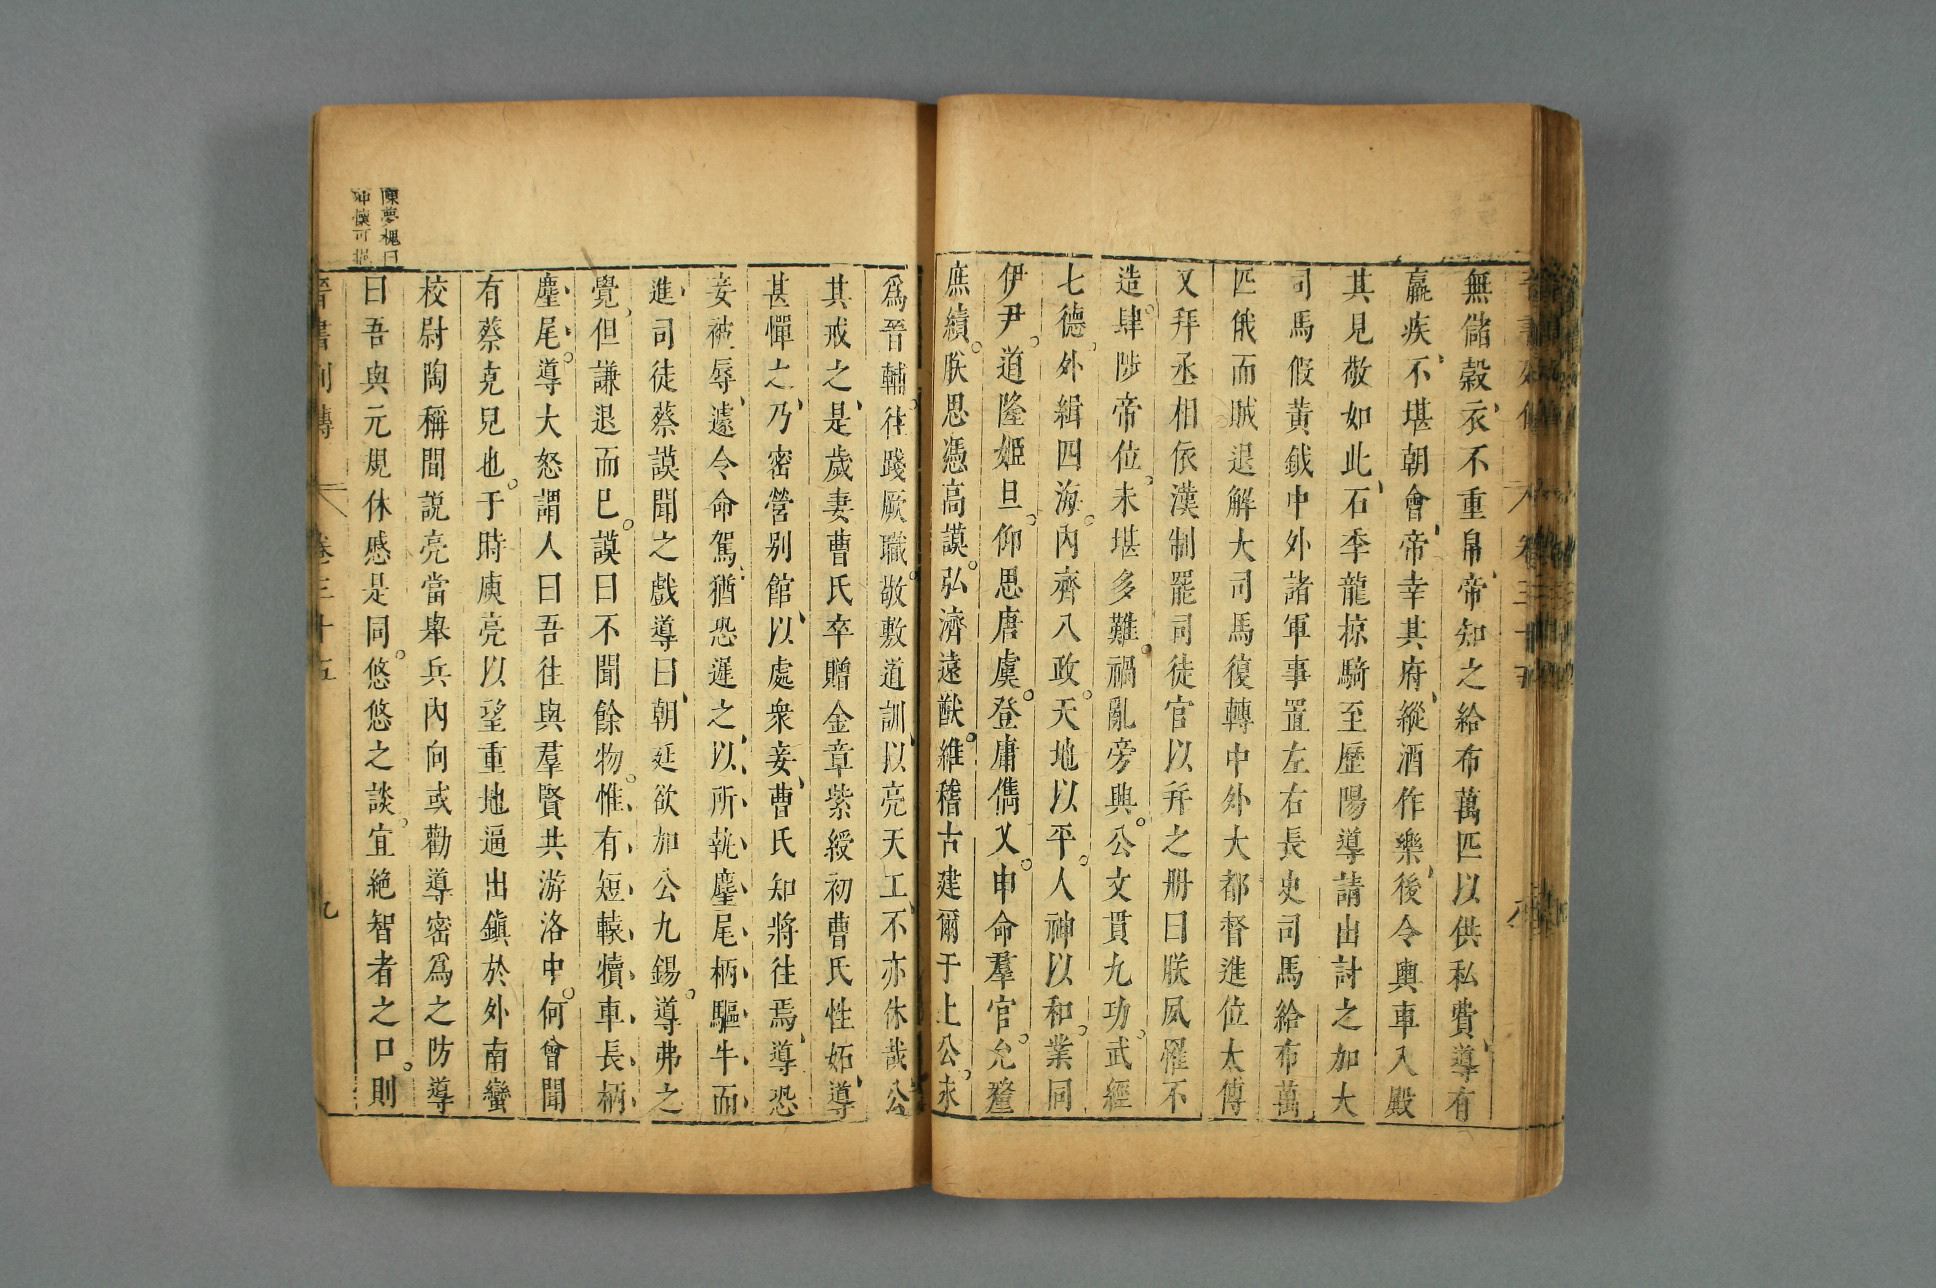 無儲穀衣不重帛帝知之給布萬匹以供私費導有
羸疾不堪朝會帝幸其府縱酒作樂後令輿車入殿
其見敬如此石季龍掠騎至歷陽導請出討之加大
司馬假黃鉞中外諸軍事置左右長史司馬給布萬
匹俄而賊退解大司馬復轉中外大都督進位太傅
又拜丞相依漢制罷司徒官以并之册曰朕夙罹不
造肆陟帝位未堪多難禍亂旁興公文貫九功武經
七德外緝四海內齊八政天地以平人神以和業同
伊尹道隆姬旦仰思唐虞登庸儁乂申命羣官允釐
庶績朕思憑高謨弘濟遠猷維稽古建爾于上公永
爲晉輔往踐厥職敬敷道訓以亮天工不亦休哉公
其戒之是歲妻曹氏卒贈金章紫綬初曹氏性妬導
甚憚之乃密營别館以處衆妾曹氏知將往焉導恐
妾被辱遽令命駕猶恐遲之以所執麈尾柄驅牛而
進司徒蔡謨聞之戲導曰朝廷欲加公九錫導弗之
覺但謙退而已謨曰不聞餘物惟有短轅犢車長柄
麈尾導大怒謂人曰吾往與羣賢共游洛中何曾聞
有蔡克兒也于時庾亮以望重地逼出鎮於外南蠻
校尉陶稱間說亮當舉兵內向或勸導密爲之防導
曰吾與元規休慼是同悠悠之談宜絶智者之口則
晉書列傳 卷三十五 九
陳夢槐曰
冲懷可挹